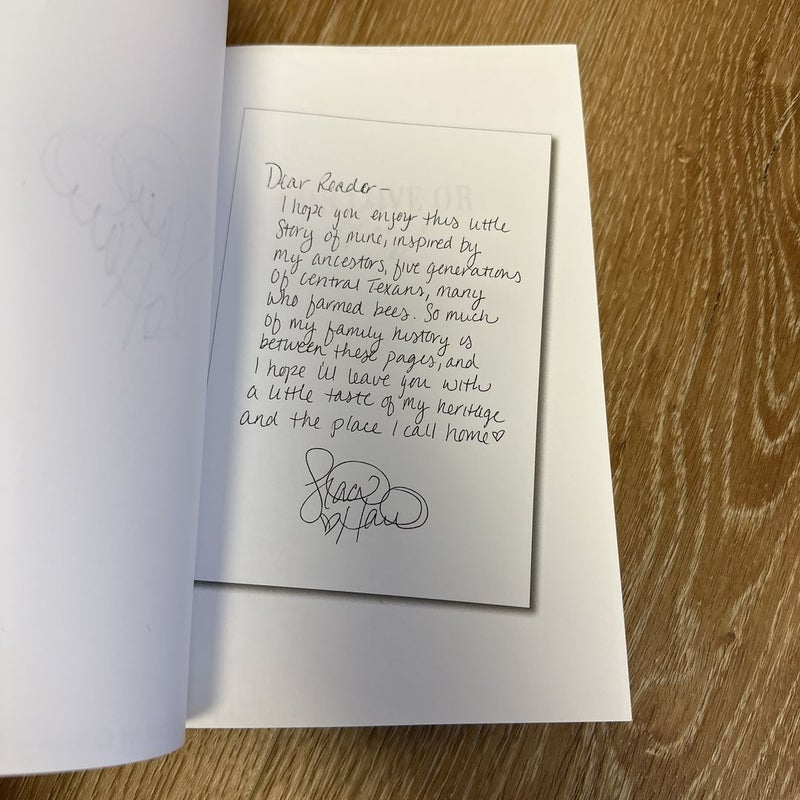 Dear Reader-
I hope you enjoy this little
story of mine, inspired by
my ancestors, five generations
of central Texans, many
who farmed bees. So much
of my family history is
between these pages, and
I hope I'll leave you with
a little taste of my heritage
and the place I call home♡